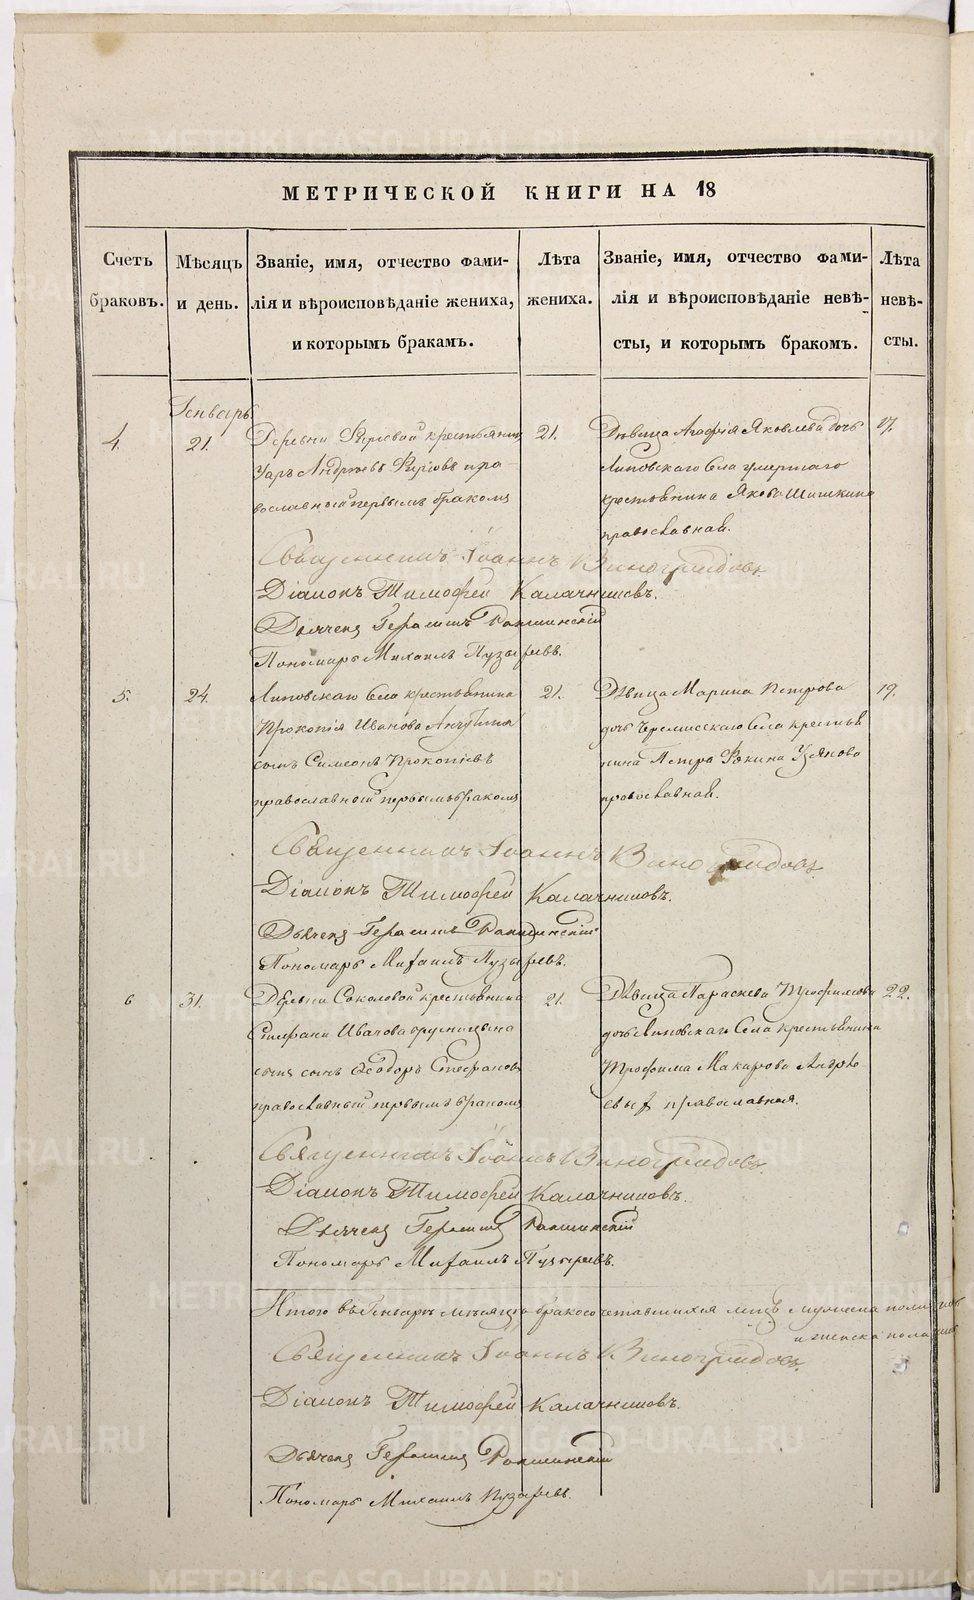 МЕТРИЧЕСКОЙ КНИГИ НА 18
Счетъ браковъ.
Мѣсяцъ и день.
Званіе, имя, отчество фами-
лія и вѣроисповѣданіе жениха,
и которымъ бракамъ.
Лѣта
жениха.
Званіе, имя, отчество фами-
лія и вѣроисповѣданіе невѣ-
сты, и которымъ бракомъ.
Лѣта
невѣ-
сты.
Генварь
4. 21.
Деревни крестьянинъ
Уаръ Андреевъ пра-
вославный первымъ бракомъ
21.
Дѣвица Агафія Яковлева дочь
Липовскаго села умершаго
крестьянина Якова Шишкина
православная.
17.
Священникъ Іоаннъ Виноградовъ.
Діаконъ Тимофей Калачниковъ.
Дьячекъ Герасимъ
Пономарь Михаилъ Пузыревъ.
5. 24.
Липовскаго села крестьянина
Прокопія Иванова
сынъ Симеонъ Прокопіевъ
православный первымъ бракомъ
21.
Дѣвица Марина Петрова
дочь Черемисскаго села крестья
нина Петра Фокина
православная.
19.
Священникъ Іоаннъ Виноградовъ.
Діаконъ Тимофей Калачниковъ.
Дьячекъ Герасимъ
Пономарь Михаилъ Пузыревъ.
6 31.
Деревни Соколовой крестьянина
Стефана Иванова
сынъ Ѳеодоръ Стефановъ
православный первымъ бракомъ
21.
Дѣвица Параскева Трофимова
дочь Липовскаго села крестьянина
Трофима Макарова Андрѣ
евыхъ православная.
22.
Священникъ Іоаннъ Виноградовъ.
Діаконъ Тимофей Калачниковъ.
Дьячекъ Герасимъ
Пономарь Михаилъ Пузыревъ.
Итого въ Генварѣ мѣсяцѣ бракосочетавшихся лицъ мужеска пола
и женска пола
Священникъ Іоаннъ Виноградовъ.
Діаконъ Тимофей Калачниковъ.
Дьячекъ Герасимъ
Пономарь Михаилъ Пузыревъ.
METRIKI.GASO-URAL.RU